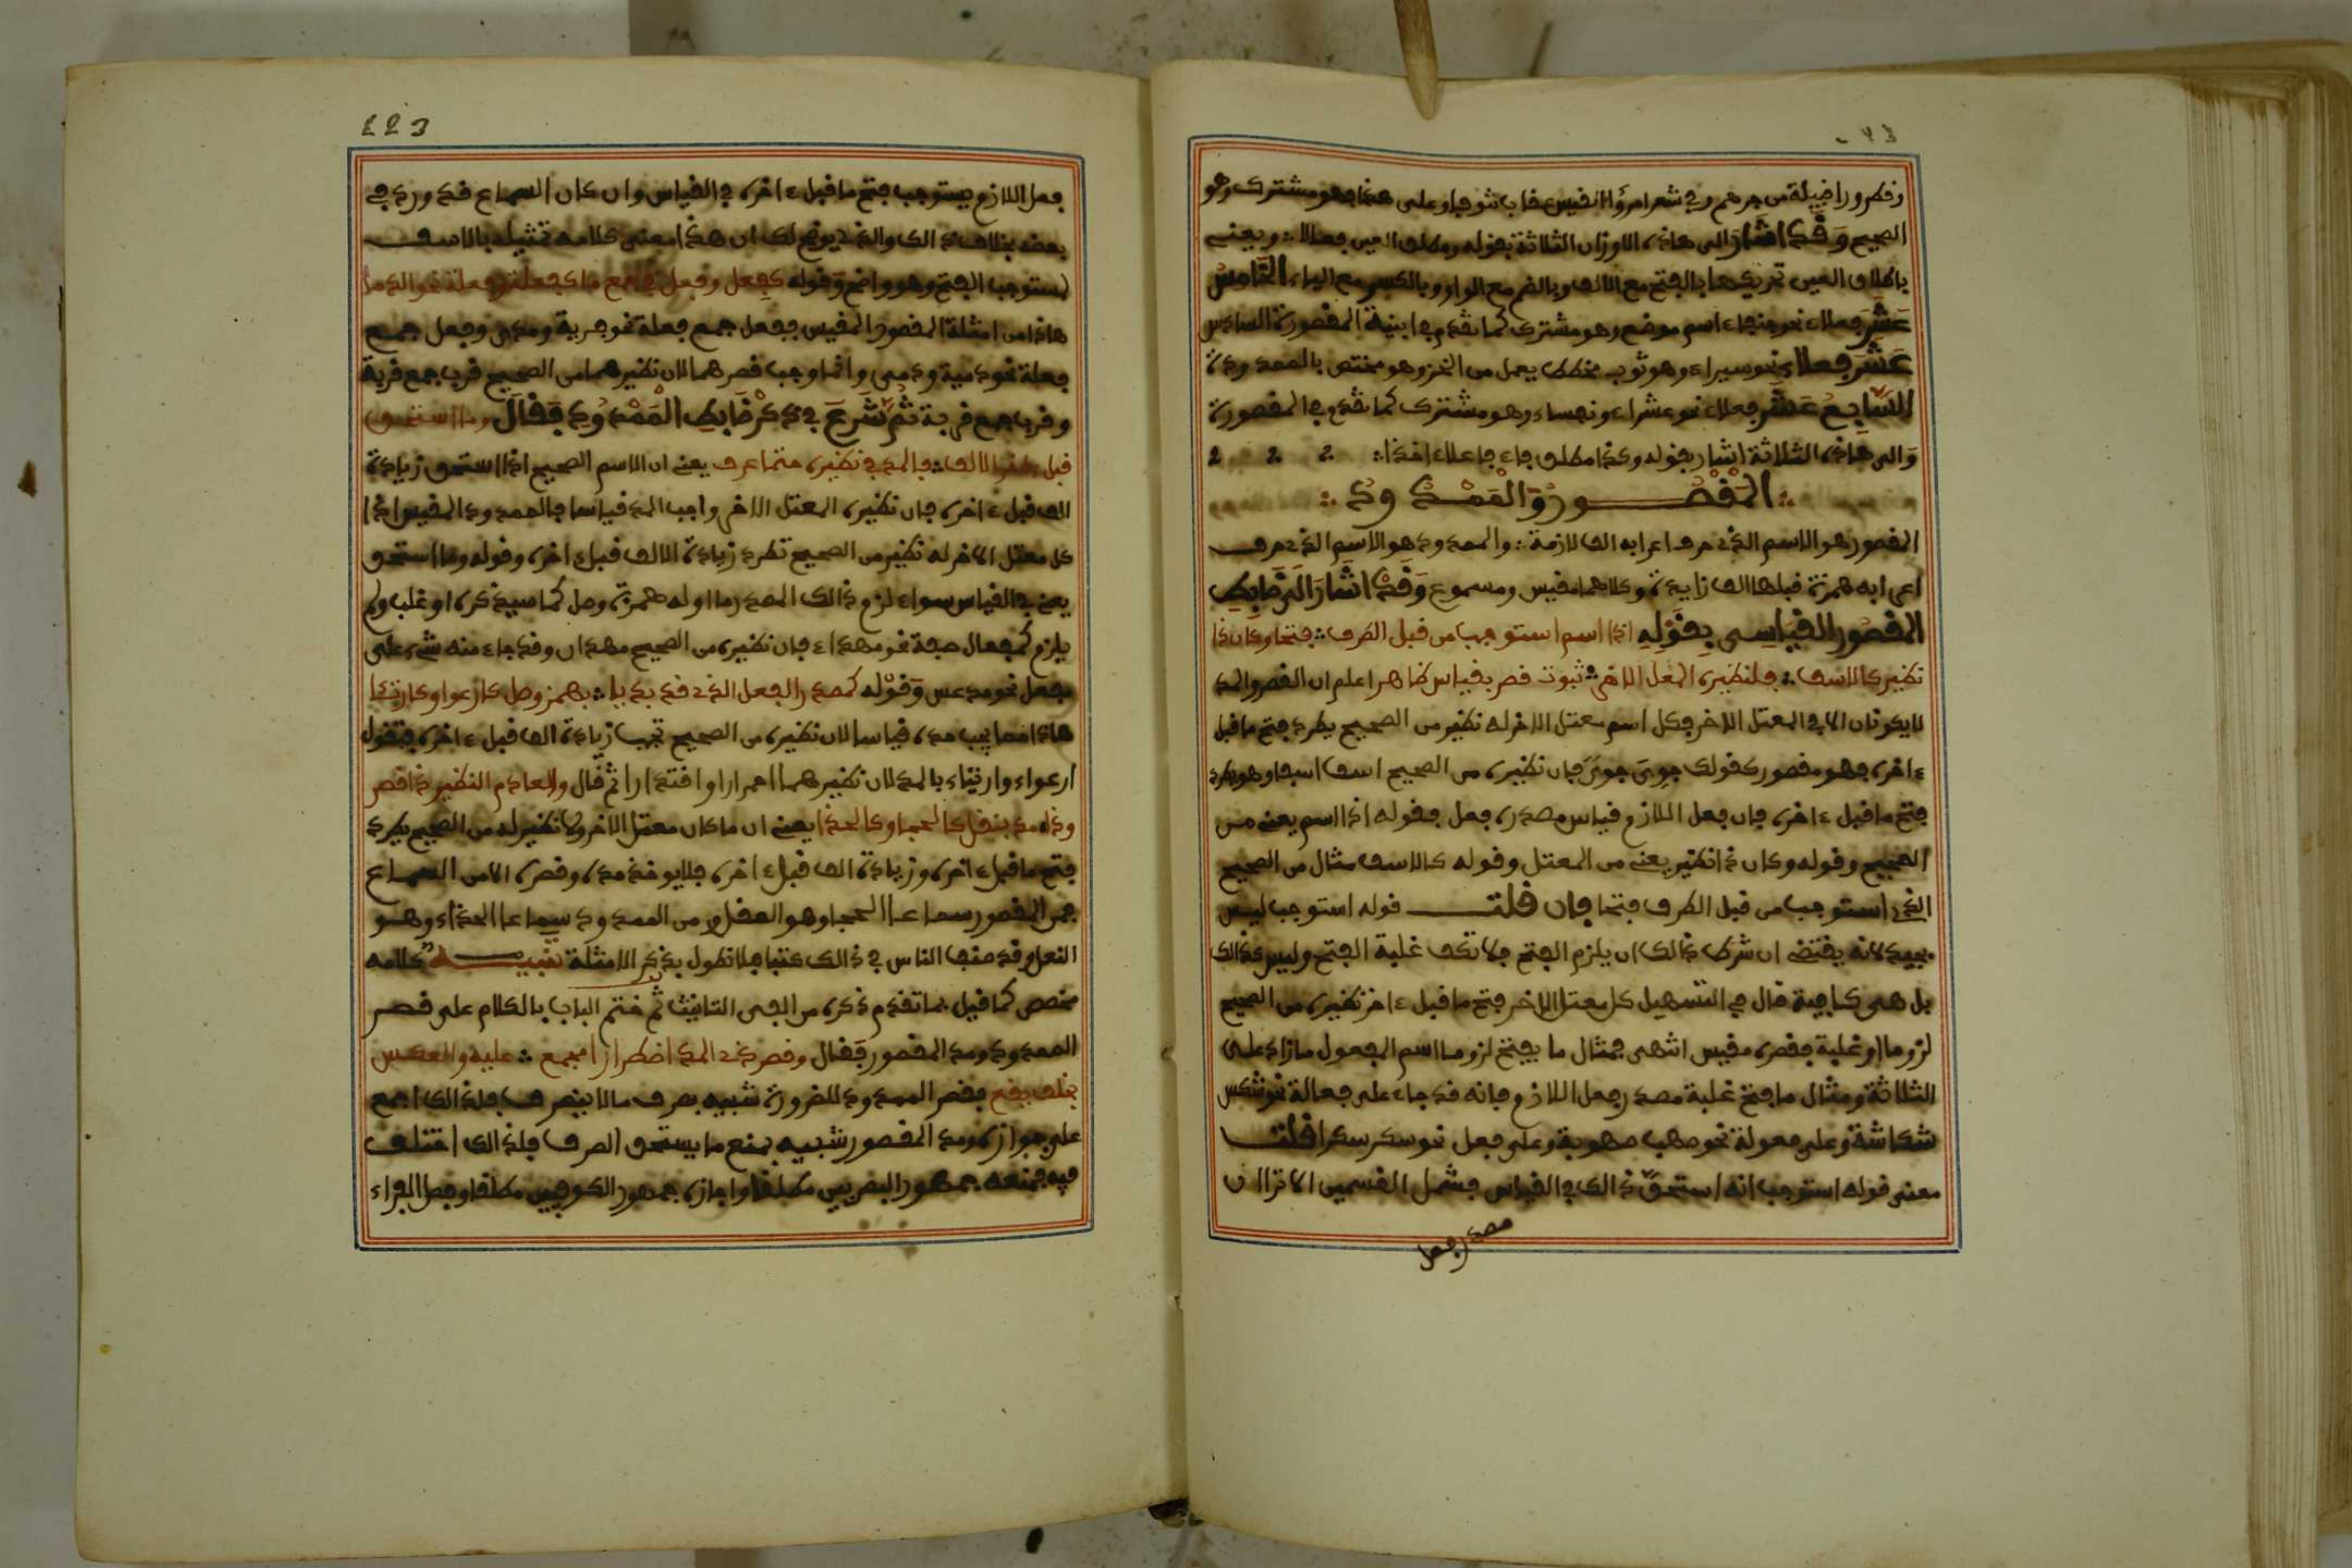 الصحيح وَقَدَ اشَارَ الى هاذه الاوزان الثلاثة بقوله ومطلق العين فعالا ؞ ويعنى
باطلاق العين تحريكها بالفتح مع الالف وبالضم مع الواو وبالكسر مع الياء الخَامِسَ
عَشَرَ فعلاء نحو جنفاء اسم موضع وهو مشترك كما تقدم في ابنية المقصورة السادس
عَشَرَ فعلاء نحو سيراء وهو ثوب مخطط يعمل من الخز وهو مختص بالممدودة
السَّابِعُ عَشَر فعلاء نحو عشراء ونفساء وهو مشترك كما تقدم في المقصورة
وَالى هاذه الثلاثة اشار بقوله وكذا مطلق فاء فعلاء اخذا ؞
؞ المَقْصُورُ وَالمَمْدُودُ ؞
المقصور هو الاسم الذى حرف اعرابه الف لازمة ؞ والممدود هو الاسم الذى حرف
اعرابه همزة قبلها الف زايدة وكلاهما مقيس ومسموع وَقَدْ اشَارَ الَى ضَابِطِ
المقصُور القيَاسِى بِقَوْلِهِ اذا اسم استوجب من قبل الطرف ؞ فتحا وكان ذا
نظير كالاسف ؞ فلنظيره المعل الاخر ؞ ثبوت قصر بقياس ظاهر اعلم ان القصر والمد
لا يكونان الا في المعتل الاخر فكل اسم معتل الاخر له نظير من الصحيح يطرد فتح ما قبل
ءاخره فهو مقصور كقولك جوِىَ جوًى فان نظيره من الصحيح اسف اسفا وهو يطرد
فتح ما قبل ءاخره فان فعل اللازم قياس مصدره فعل فقوله اذا اسم يعنى من
الصحيح وقوله وكان ذا نظير يعنى من المعتل وقوله كالاسف مثال من الصحيح
الذى استوجب من قبل الطرف فتحا فان قلت قوله استوجب ليس
بجيد لانه يقتضى ان شرط ذالك ان يلزم الفتح فلا تكف غلبة الفتح وليس كذالك
بل هى كافية قال في التسهيل كل معتل الاخر فتح ما قبل ءاخر نظيره من الصحيح
لزوما او غلبة فقصره مقيس انتهى فمثال ما يفتح لزوما اسم المفعول مازاد على
الثلاثة ومثال ما فتح غلبة مصدر فعل اللازم فانه قد جاء على فعالة نحو شكس
شكاسة وعلى فعولة نحو صهب صهوبة وعلى فعل نحو سكر سكرا قلت
معنى قوله استوجب انه استحقّ ذالك في القياس فشمل القسمين الا ترا ان
مصدر فعل
223
فعل اللازم يستوجب فتح ما قبل ءاخره في القياس وان كان السماع قد ورد في
بعضه بخلاف ذالك والذى يوضح لك ان هذا معنى كلامه تمثيله بالاسف
يستوجب الفتح وهو واضح وَقوله كفِعل وفُعل في جمع ما كفِعلة وفُعلة نحو الدما
هاذا من امثلة المقصور المقيس ففعل جمع فعلة نحو مرية ومرى وفعل جمع
فعلة نحو دمية ودمى وانما وجب قصرهما لان نظيرهما من الصحيح قرب جمع قربة
وقرب جمع قربة ثُمَّ شَرَعَ فِي ذِكْرِ ضَابِطِ المَمْدُودِ فَقَالَ وما استحق
قبل ءاخر الف ؞ فالمد في نظيره حتما عرف يعنى ان الاسم الصحيح اذا استحق زيادة
الف قبل ءاخره فان نظيره المعتل الاخر واجب المد قياسا فالممدود المقيس اذا
كل معتل الاخر له نظير من الصحيح تطرد زيادة الالف قبل ءاخره وقوله وما استحق
يعنى في القياس سواء لزم ذالك المصدر ما اوله همزة وصل كما سيذكره او غلب ولم
يلزم كمفعال صفة نحو مهداء فان نظيره من الصحيح مهدان وقد جاء منه شىء على
مفعل نحو مدعس وَقوْله كمصدر الفعل الذى قد بديا ؞ بهمز وصل كارعوا وكارتئا
هاذا مما يجب مده قياسا لان نظيره من الصحيح تجب زيادة الف قبل ءاخره فتقول
ارعواء وارتئاء بالمد لان نظيرهما احمرارا واقتدارا ثم قال والعادم النظير ذا قصر
وذا مد بنقل كالحجا وكالحذا يعنى ان ما كان معتل الاخر ولا نظير له من الصحيح يطرد
فتح ما قبل ءاخره وزيادة الف قبل ءاخره فلا يوخذ مده وقصره الا من السماع
فمن المقصور سماعا الحجا وهو العقل ومن الممدود سماعا الحذاء وهو
النعل وقد صنف الناس في ذالك كتبا فلا نطول بذكر الامثلة تنبيه كلامه
مخصص كما قيل بما تقدم ذكره من الفى التانيث ثم ختم الباب بالكلام على قصر
الممدود ومد المقصور فَقَال وقصر ذى المد اضطرارا مجمع ؞ عليه والعكس
بخلف يقع فقصر الممدود للضرورة شبيه بصرف ما لا ينصرف فلذالك اجمع
على جوازه ومد المقصور شبيه بمنع ما يستحق الصرف فلذالك اختلف
فيه فمنعه جمهور البصريين مطلقا واجازه جمهور الكوفيين مطلقا وفصل الفراء